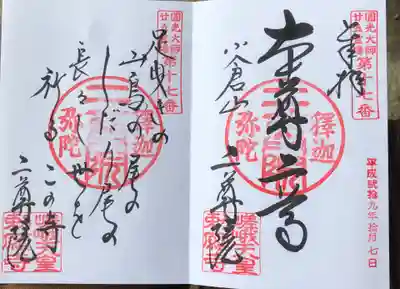 奉拝
圓光大師
廿五霊場
第十七番
本尊二尊
釋迦
弥陀
小倉山
二尊院
嵯峨天皇
平成貮拾九年拾月七日
圓光大師
廿五霊場
第十七番
足曳きの
山鳥の尾の
しだり尾の
釋迦
弥陀
長々し世を
祈るこの寺
二尊院
嵯峨天皇